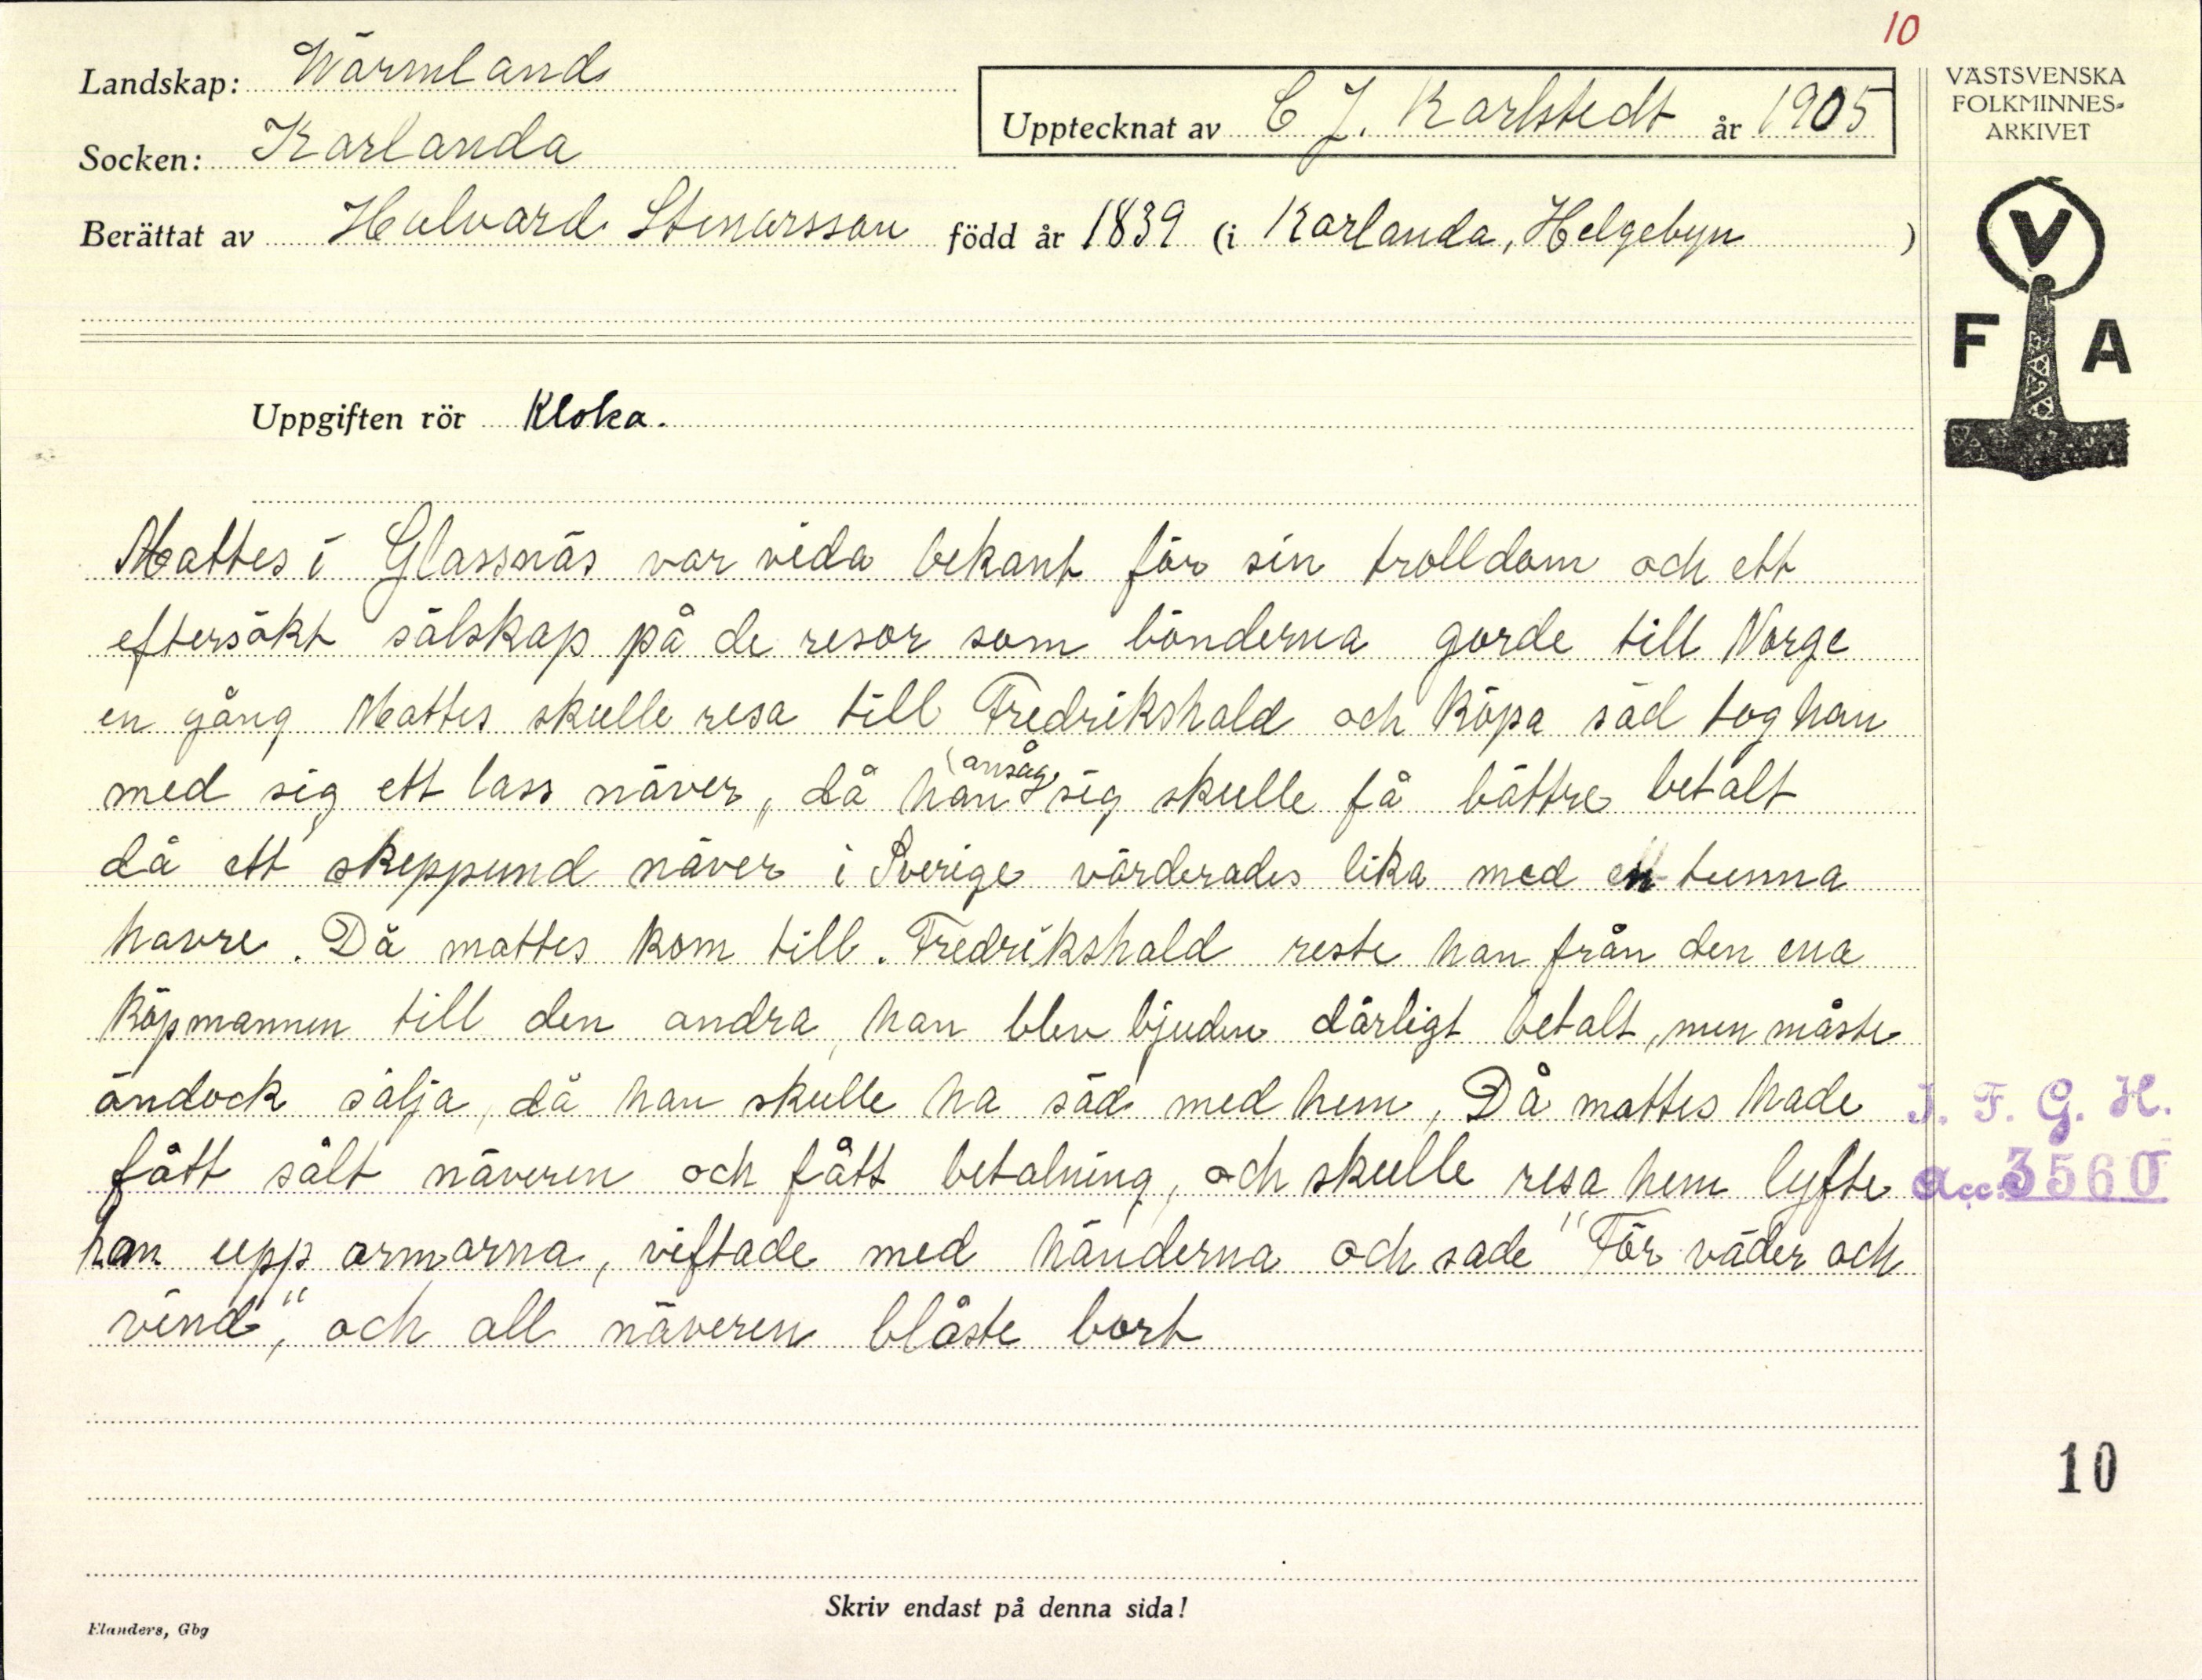 10
Landskap: Wärmland
Upptecknat av C J. Karlstedt år 1905
VÄSTSVENSKA
FOLKMINNES-
ARKIVET
Socken: Karlanda
Berättat av Halvard Stenarsson född år 1839 (i Karlanda, Helgebyn )
V
F A
Uppgiften rör Kloka.
Mattes i Glassnäs var vida bekant för sin trolldom och ett
eftersökt sälskap på de resor som bönderna gorde till Norge
en gång Mattes skulle resa till Fredrikshald och köpa säd tog han
med sig ett lass näver, då han ansåg sig skulle få bättre betalt
då ett skeppund näver i Sverige värderades lika med en tunna
havre. Då mattes kom till. Fredrikshald reste han från den ena
köpmannen till den andra, han blev bjuden dårligt betalt, men måste
ändock sälja, då han skulle ha säd med hem, Då mattes hade
fått sålt näveren och fått betalning, och skulle resa hem lyfte
han upp armarna, viftade med händerna och sade "För väder och
vind", och all näveren blåste bort
I. F. G. H.
Acc. 3560
10
Skriv endast på denna sida!
Elanders, Gbg